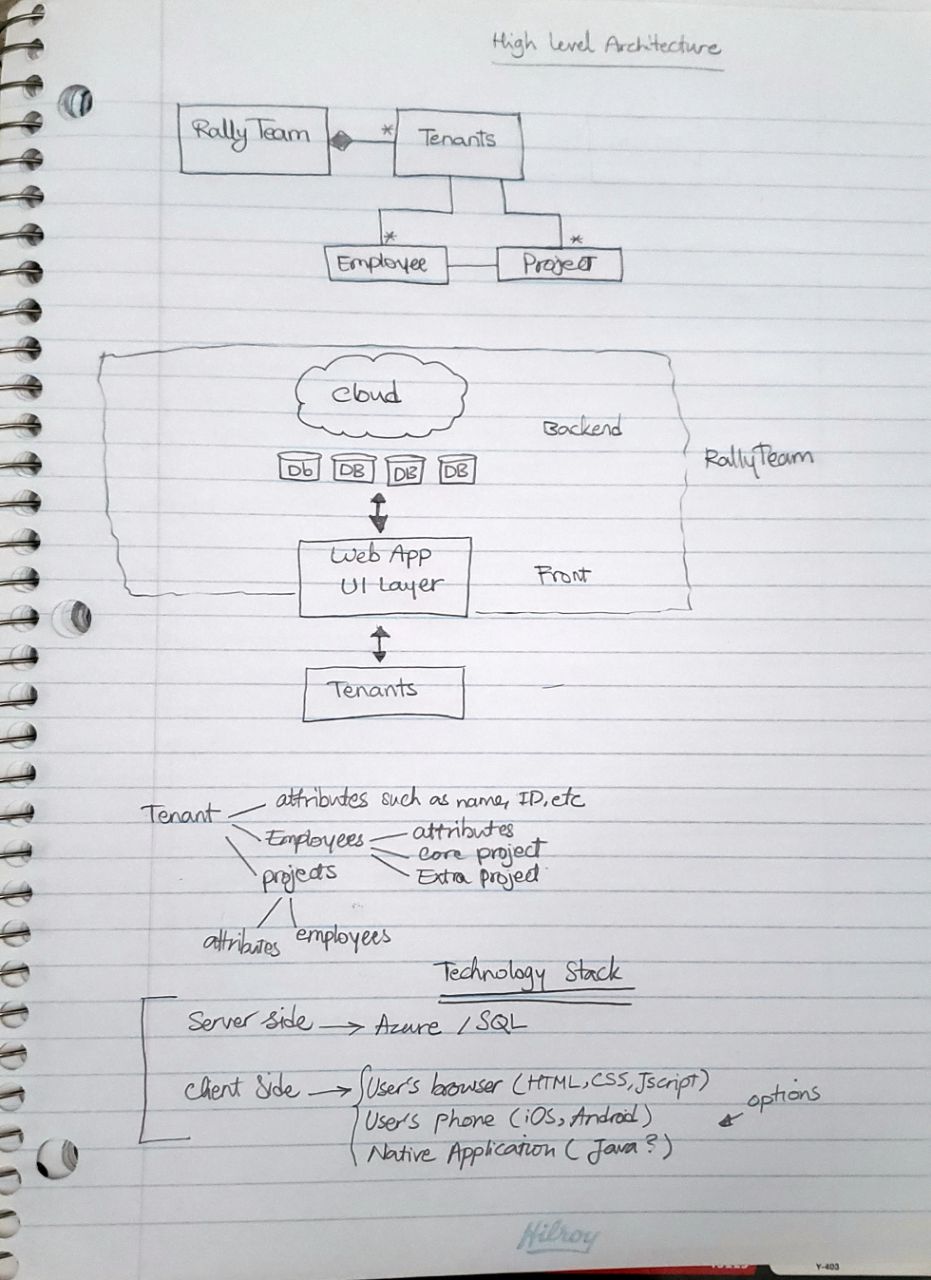 High Level Architecture
RallyTeam * Tenants
* *
Employee Project
Cloud
Backend
RallyTeam
Db DB DB DB
Web App
UI Layer
Front
Tenants
Tenant attributes such as name, ID, etc
Employees attributes
core project
projects Extra project
attributes employees
Technology Stack
Server side → Azure / SQL
Client side → User's browser (HTML, CSS, Jscript)
options
User's phone (iOS, Android)
Native Application (Java?)
Hilroy
Y-403